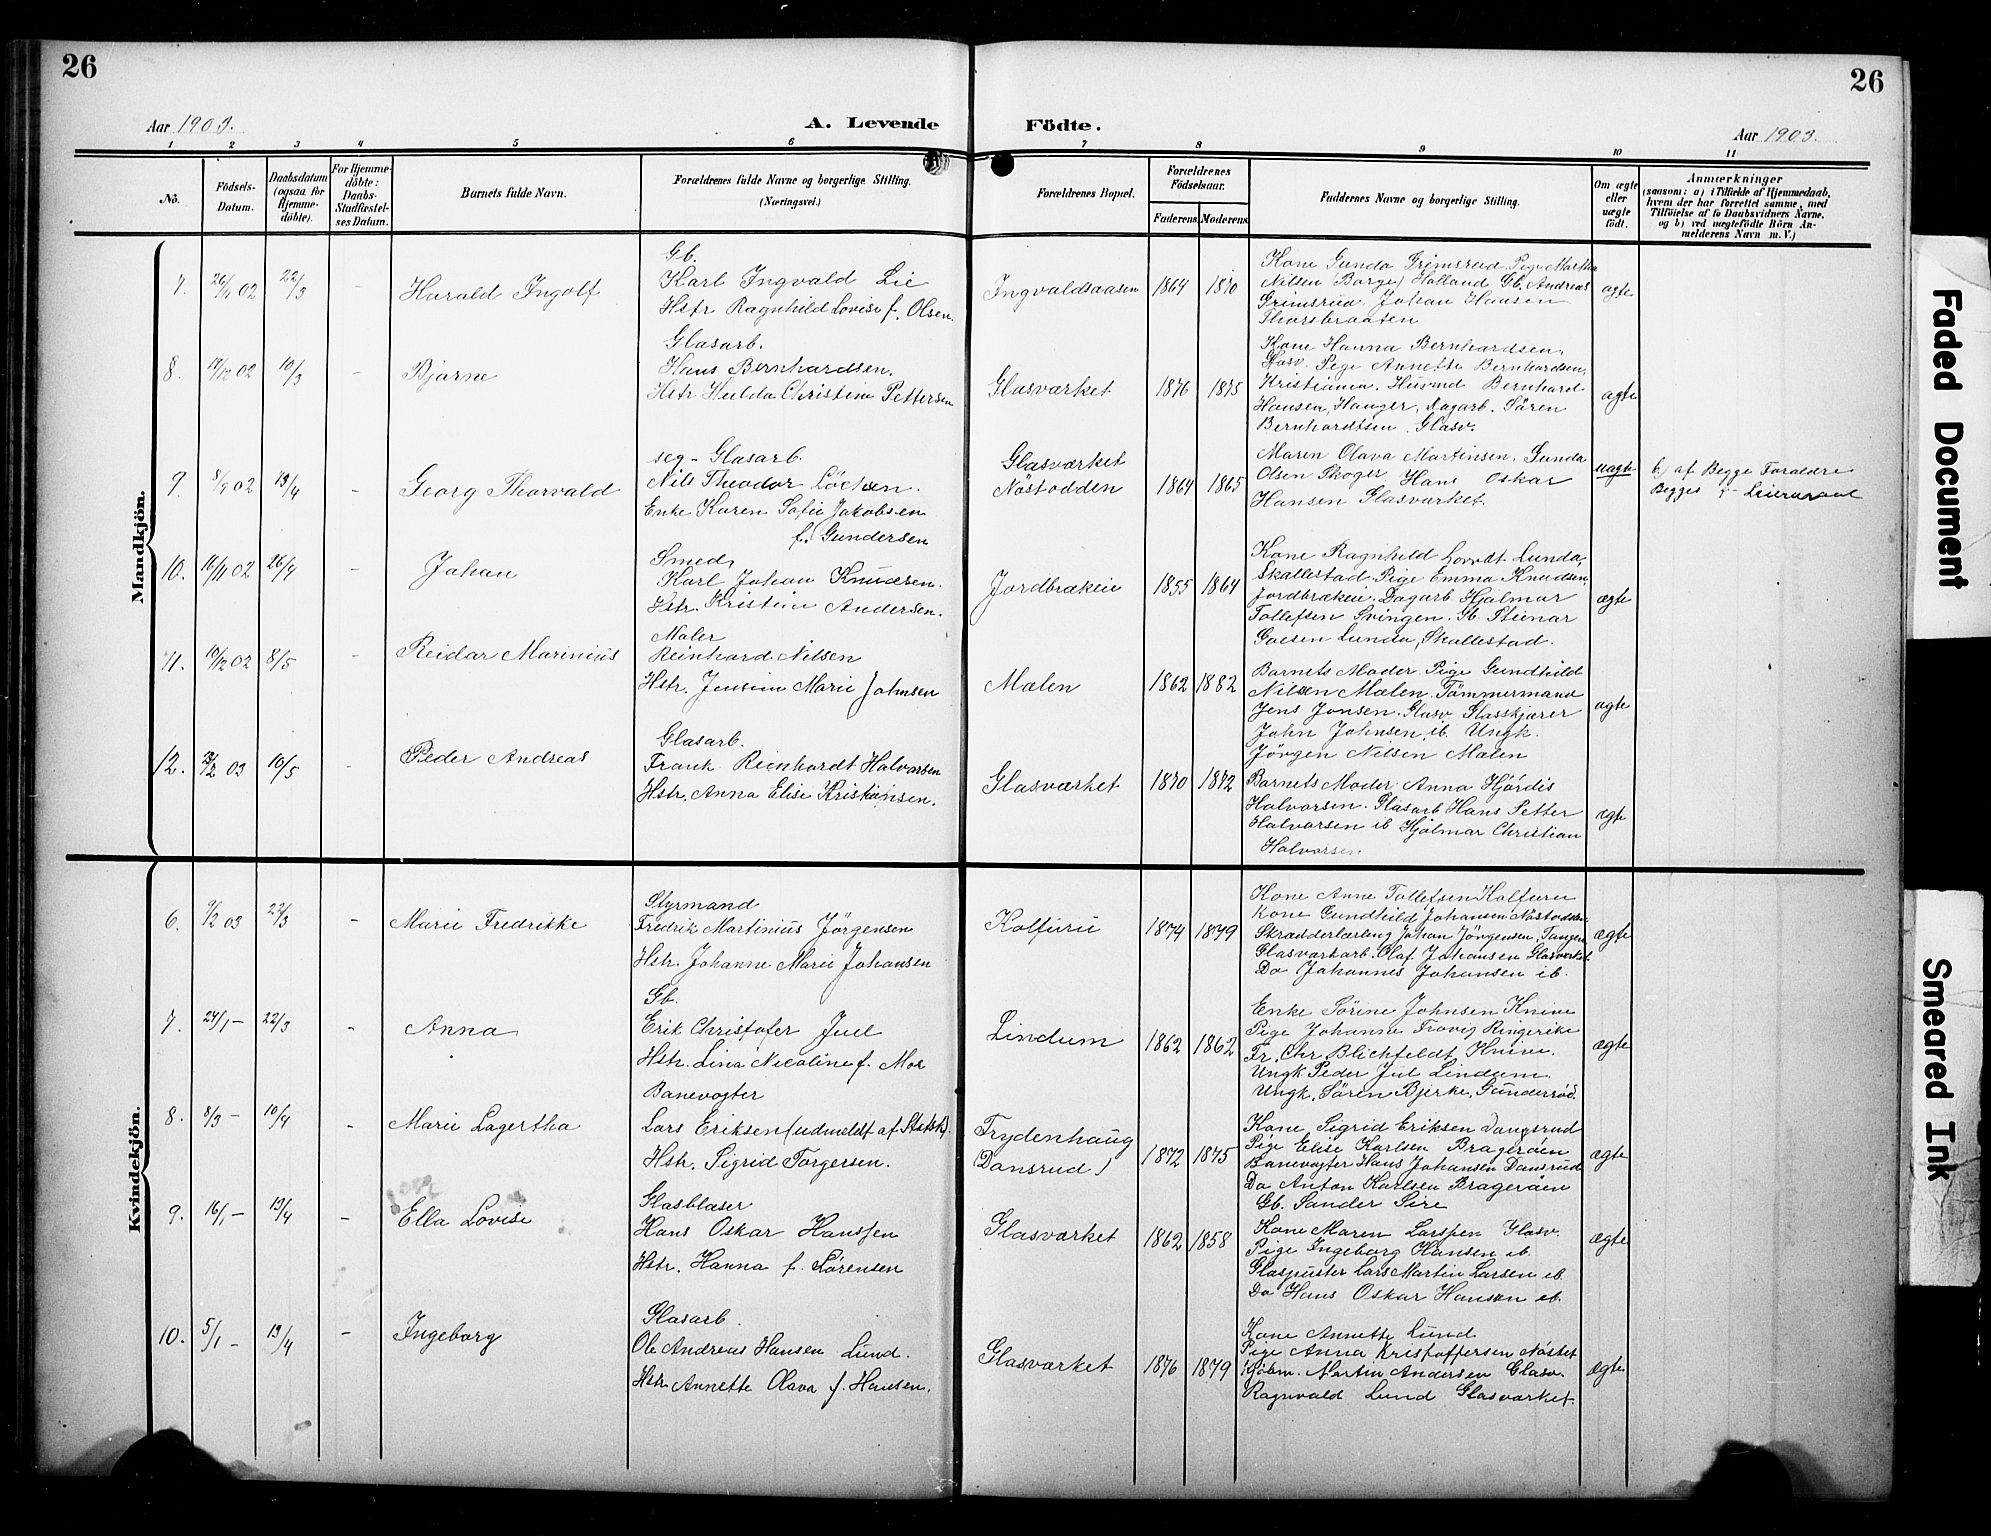 26
26
Aar 1903.
A. Levende
Födte.
Aar 1903.
1 2 3 4 5 6 7 8 9 10 11
No.
Födsels-
Datum.
Daabsdatum
(ogsaa for
Hjemme-
döbte).
For Hjemme-
döbte:
Daabs-
Stadfæstel-
ses Datum.
Barnets fulde Navn.
Forældrenes fulde Navne og borgerlige Stilling.
(Næringsvei.)
Forældrenes Bopæl.
Forældrenes
Födselsaar.
Faderens. Moderens.
Faddernes Navne og borgerlige Stilling.
Om ægte
eller
uægte
födt.
Anmærkninger
(saasom: a) i Tilfælde af Hjemmedaab,
hvem der har forrettet samme, med
Tilföielse af to Daabsvidners Navne,
og b) ved uægtefödte Börn An-
melderens Navn m. V.)
Mandkjön.
7. 26/1 02 22/3 - Harald Ingolf
Gb.
Karl Ingvald Lie
Hstr Ragnhild Lovise f. Olsen.
Ingvaldsaasen 1864 1870
Kone Gunda Grimsrud Pige Martha
Nilsen (Borge) Holland Gb. Andreas
Grimsrud. Johan Hansen
Thorsbraaten
ægte
8. 17/12 02 10/3 - Bjarne
Glasarb.
Hans Bernhardsen.
Hstr Hulda Christine Pettersen
Glasværket 1876 1875
Kone Hanna Bernhardsen,
Glasv. Pige Annette Bernhardsen,
Kristiania. Husmd Bernhard
Hansen, Hanger, Dagarb. Sören
Bernhardtsen. Glasv.
ægte
9. 8/9 02 13/4 - Georg Thorvald
seg - Glasarb.
Nils Theodor Löchsen.
Enke Karen Sofie Jakobsen
f. Gundersen
Glasværket
Nöstodden 1864 1865
Maren Olava Martinsen. Gunda
Olsen Skoger Hans Oskar
Hansen Glasværket.
uægte
b) af Begge Forældre
Begges
10. 16/11 02 26/4 - Johan
Smed,
Karl Johan Knudsen.
Hstr. Kristine Andersen.
Jordbrækken 1855 1864
Kone Ragnhild Lunda,
Skallestad. Pige Emma Knudsen,
Jordbrækken. Dagarb Hjalmar
Tollefsen Svingen. Gb. Steinar
Lunda, Skallestad.
ægte
11. 19/12 02 8/5 - Reidar Marinius
Maler
Reinhard Nilsen
Hstr. Jensine Marie Johnsen
Mælen 1862 1882
Barnets Moder Pige Gundhild
Nilsen Mælen. Tömmermand
Jens Jonsen. Glasv. Glasskjærer
John Johnsen, ib. Ungk.
Jörgen Nilsen Mælen
ægte
12. 23/2 03 10/5 - Peder Andreas
Glasarb.
Frank Reinhardt Halvorsen
Hstr. Anna Elise Kristiansen.
Glasværket 1870 1872
Barnets Moder Anna Hjördis
Halvorsen. Glasarb Hans Petter
Halvorsen ib Hjalmar Christian
Halvorsen
ægte
Kvindekjön.
6. 9/2 03 22/3 - Marie Fredrikke
Styrmand
Fredrik Martinius Jörgensen
Hstr. Johanne Marie Johansen
Kolfuru 1874 1879
Kone Anne Tollefsen Kolfuru
Kone Gundhild Johansen Nöstodden.
Skrædderlærling Johan Jörgensen, Tangen
Glasværkarb. Olaf Johansen Glasværket
Do Johannes Johansen ib.
ægte
7. 24/1 - 22/3 - Anna
Gb.
Erik Christofer Juel
Hstr. Lina Nicoline f. Moe
Lindum 1862 1862
Enke Sörine Johnsen Knive
Pige Johanne Ringerike
Fr. Chr Blichfeldt Knive.
Ungk Peder Jul Lindum.
Ungk. Sören Bjerke, Gundersöd.
ægte
8. 8/3 - 10/4 - Marie Lagertha
Banevogter
Lars Eriksen (udmeldt af Statsk).
Hstr. Sigrid Torgersen.
Frydenhaug
(Dansrud) 1872 1875
Kone Sigrid Eriksen Dansrud
Pige Elise Karlsen Bragerøen
Banevogter Hans Johansen Dansrud
Do Anton Karlsen Bragerøen
Gb. Sander Sire
ægte
9. 16/1 - 13/4 - Ella Lovise
Glasblæser
Hans Oskar Hanssen
Hstr. Hanna f. Sörensen
Glasværket 1862 1858
Kone Maren Larssen Glasv.
Pige Ingeborg Hansen ib.
Glaspuster Lars Martin Larsen ib.
Do Hans Oskar Hansen ib.
ægte
10. 5/1 - 13/4 - Ingeborg
Glasarb.
Ole Andreas Hansen Lund.
Hstr Annette Olava f. Hansen.
Glasværket 1876 1879
Kone Annette Lund
Pige Anna Kristoffersen Nöstet
Kjöbm. Martin Andersen Glasv.
Ragnvald Lund Glasværket.
ægte
Faded Document
Smeared Ink